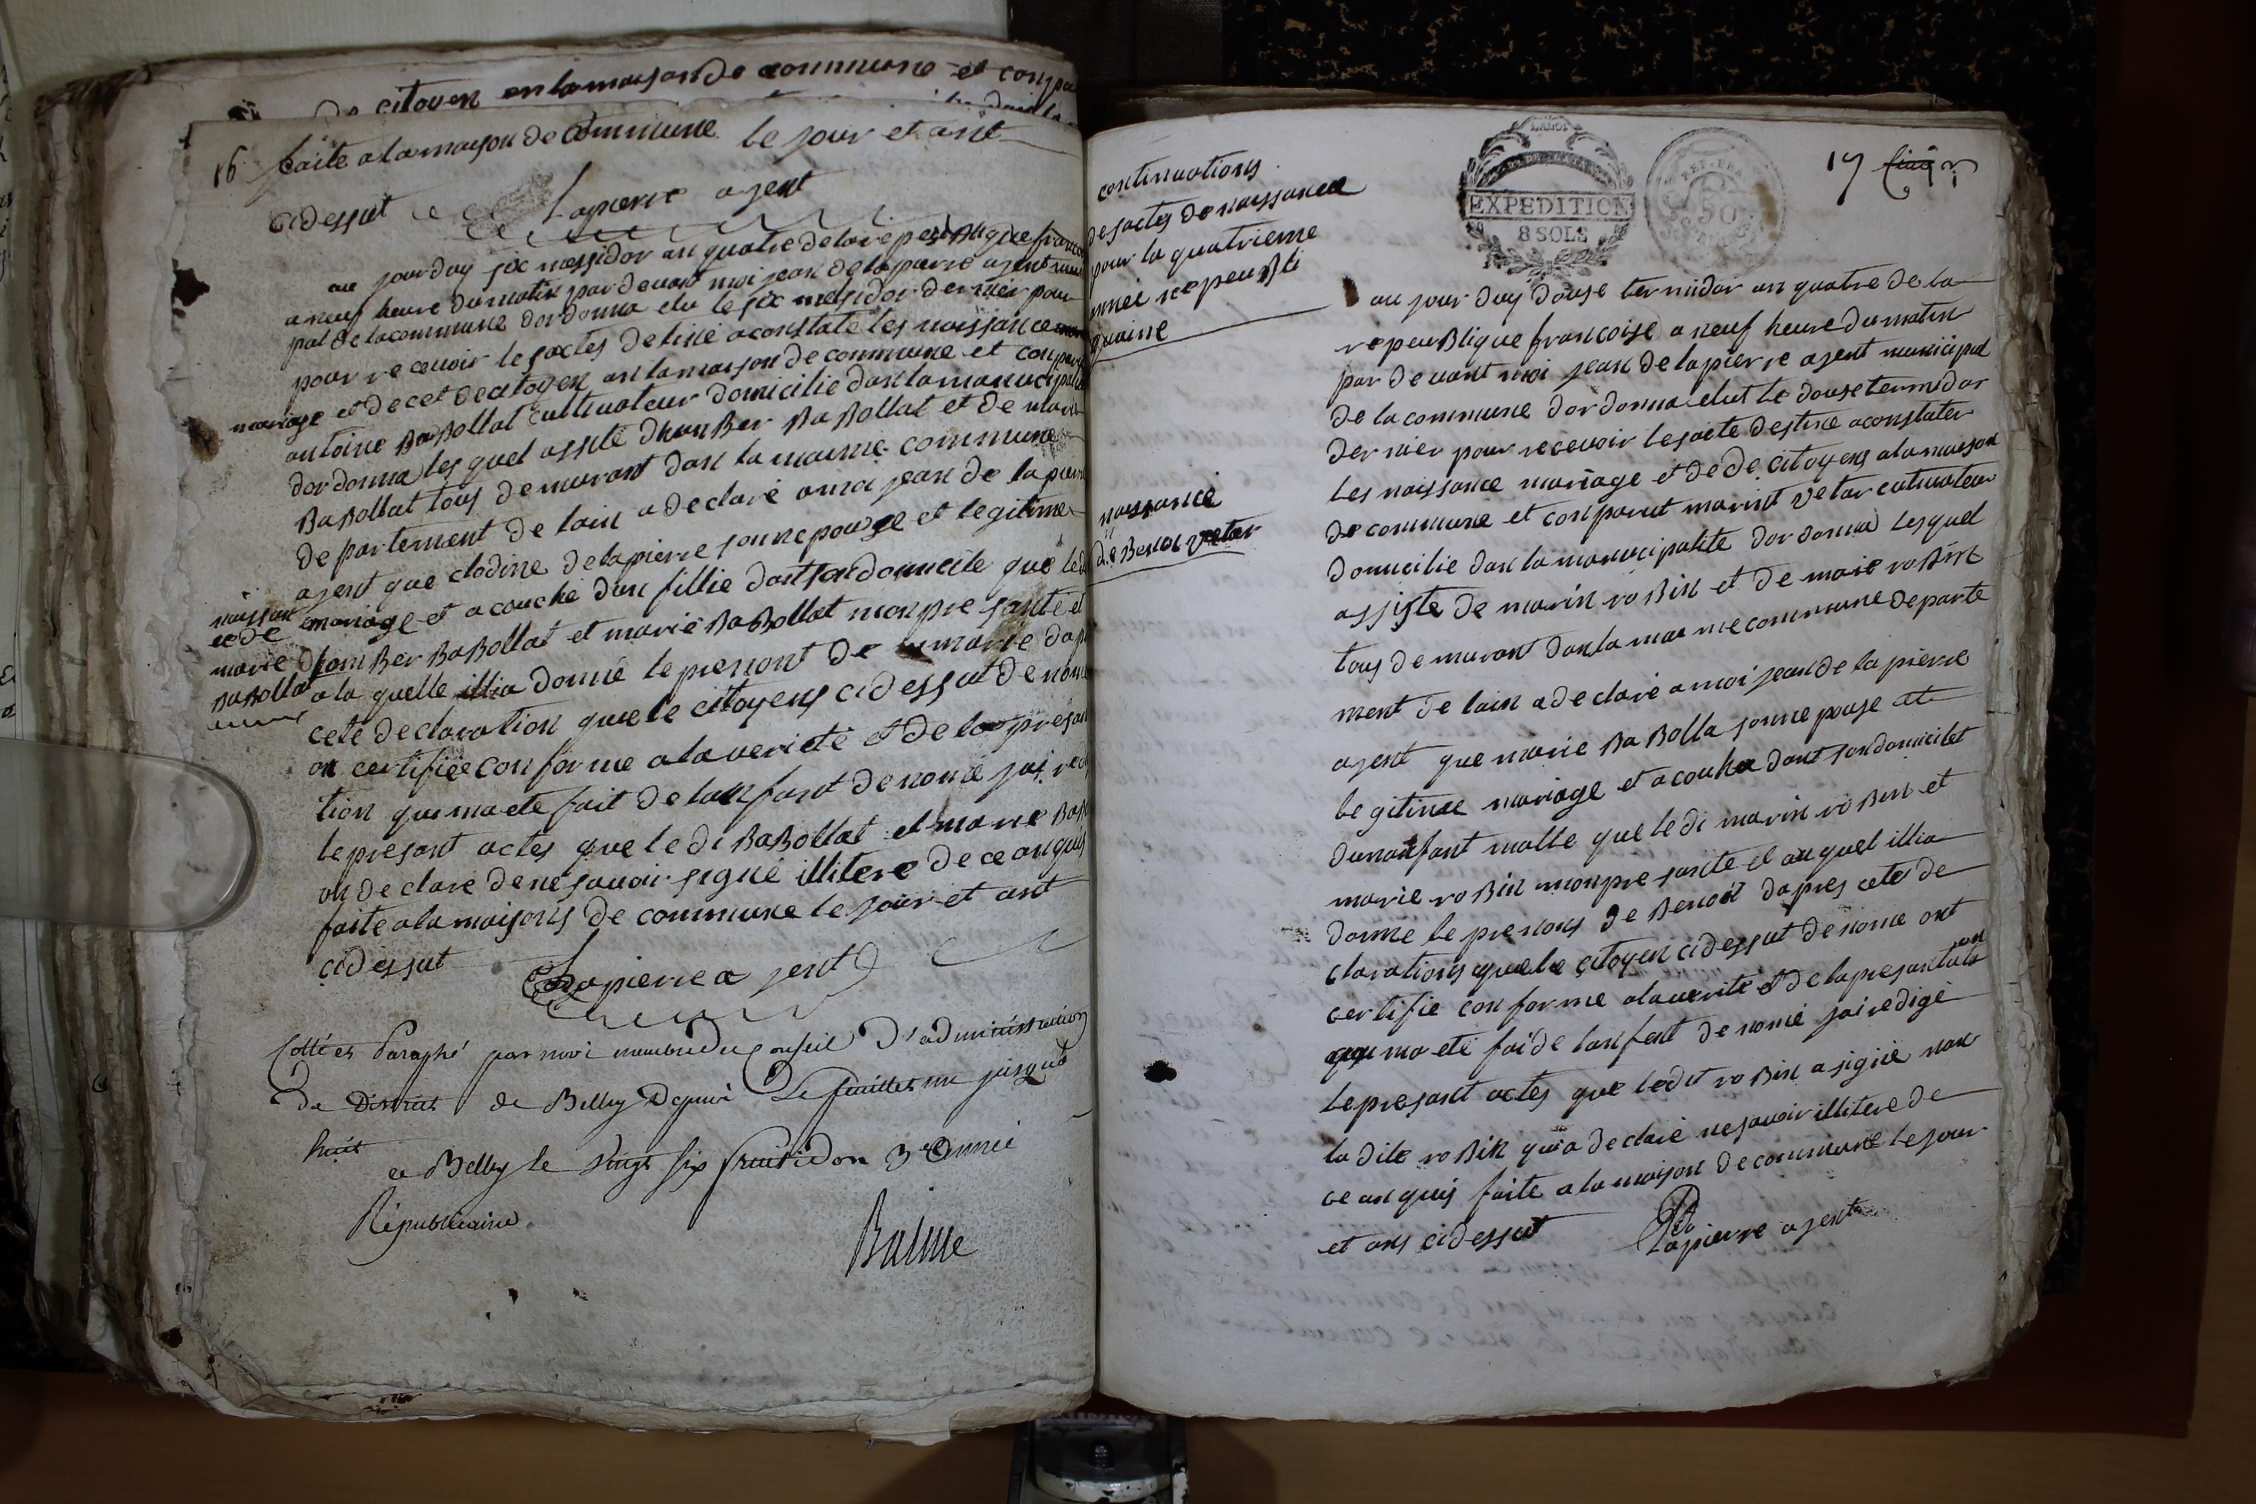 de citoyen en la maison de commune et conpa
16 faite a la maison de commune le jour et ant
cidessut Lapierre agent
au jour duy six messidor an quatre de la repeublique francoi
a neuf heure du matin par devant moi jean de lapierre agent muni
pal de la commune dordonna elu le six messidor dernier pour
pour recevoir les actes destiné a constaté les naissance
mariage et decet de citoyen an la maison de commune et conparu
antoine Babollat cultivateur domicilie dan la manucipalit
dordonna lesquel assité dhanber Babollat et de marie
Babollat tous demurant dan la maime commune
departement de lain a declaré a moi jean de la pierre
agent que clodine delapierre son nepouze et legitime
mariage et a couché dun fillie dont son domicile que le di
naissan
ce de
marie
Babolla
dhamber Babollat et marié Babollat mon pre santé et
a la quelle illia donné le prenont de marie dap
cete declaration que le citoyens cidessut denomé
on certifiée conforme a la verieté et de la presan
tion qui ma eté fait de lanfant denomé jai red
le presant actes que le di Babollat et marie Bab
on declaré de ne savoir signé illitere de ce anquis
faite a la maisons de commune le jour et ant
cidessut
Lapierre agent
Cotté et Paraphé par moi membre du Conseil D'administration
du District de Belley Depuis le feuillet un jusqua
huit
a Belley le vingt six fructidor 3e année
Républicaine
Balme
17
LA LOI
EXPEDITION
8 SOLS
50
continuations
desactes de naissance
pour la quatrieme
année repeubli
quaine
au jour duy douse termidor an quatre de la
repeublique francoise a neuf heure du matin
par devant moi jean de lapierre agent municipal
de la commune dordonna elut le douse termidor
dernier pour recevoir lesacte destiné a constater
les naissance mariage et de de citoyens a la maison
de commune et conparut marint vetar cutivateur
domicilie dan la manucipalité dordonna lesquel
assisté de marin robin et de marie robin
tous demurant dan la maime commune departe
ment de lain a declaré a moi jean de la pierre
naissance
de Benoi vetar
agent que marie Babolla sonne pouse et
legitime mariage et a couha dont son domicilet
dunanfant malle que le di marin robin et
marie robin mon pre santé et au quel illia
donné le prenons de Benoit dapres cete de
clarations que le citoyen cidessut denome ont
certifie conforme a la verité et de la presantation
qui ma eté fai de lanfant denomé jai redigé
le presant actes que ledit robin a signé non
la dite robin qui a declaré ne savoir illitere de
ce anquis faite a la maison de commune le jour
et ans cidessut
Lapierre agent